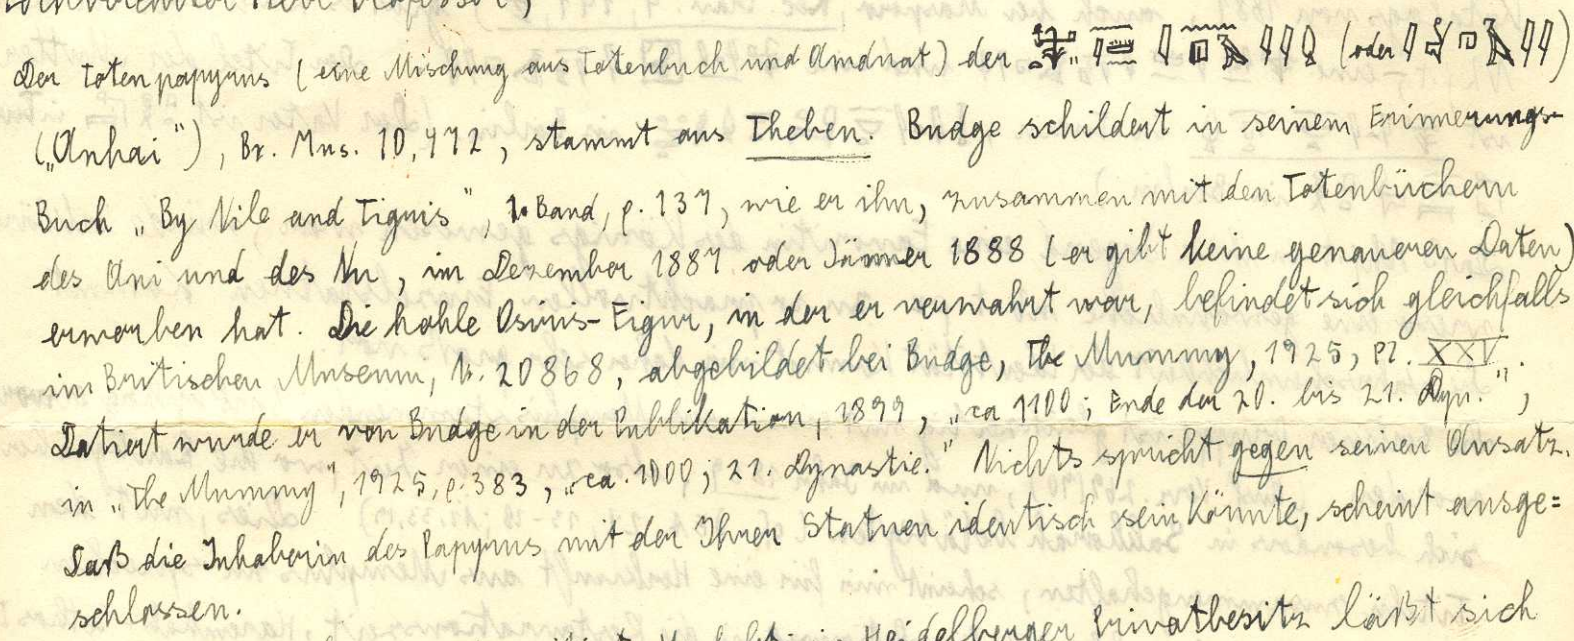 Hochverehrter Herr Professor,
Der Totenpapyrus (eine Mischung aus Totenbuch und Amduat) der (oder )
(„Anhai"), Br. Mus. 10,472, stammt aus Theben. Budge schildert in seinem Erinnerungs-
Buch „By Nile and Tigris", 1. Band, p. 137, wie er ihn, zusammen mit den Totenbüchern
des Ani und des Nu, im Dezember 1887 oder Jänner 1888 (er gibt keine genaueren Daten)
erworben hat. Die hohle Osiris-Figur, in der er verwahrt war, befindet sich gleichfalls
im Britischen Museum, N. 20868, abgebildet bei Budge, The Mummy, 1925, Pl. XXV.
Datiert wurde er von Budge in der Publikation, 1899, „ca 1100; Ende der 20. bis 21. Dyn.",
in „The Mummy", 1925, p. 383, „ca. 1000; 21. Dynastie." Nichts spricht gegen seinen Ansatz.
Daß die Inhaberin des Papyrus mit der Ihrer Statuen identisch sein könnte, scheint ausge=
schlossen.
Heidelberger Privatbesitz läßt sich